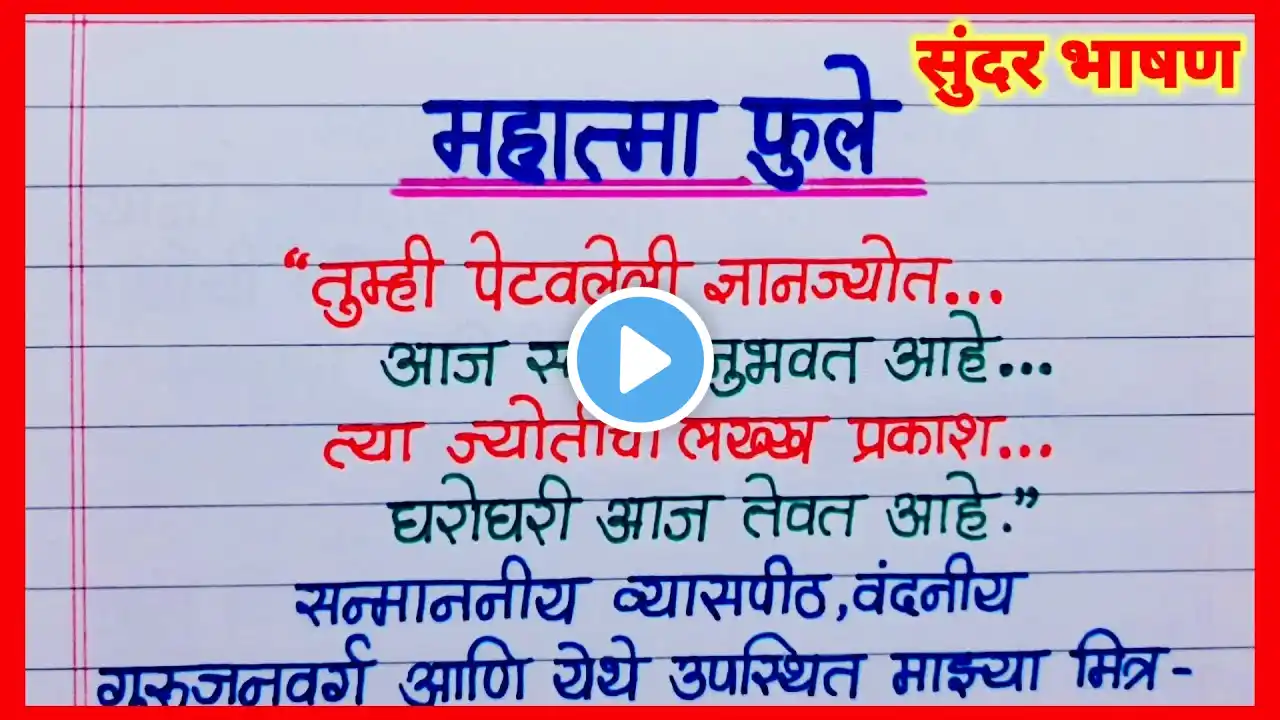 सुंदर भाषण
महात्मा फुले
“तुम्ही पेटवलेली ज्ञानज्योत...
आज आहे...
त्या ज्योतीचा लख्ख प्रकाश...
घरोघरी आज तेवत आहे.”
सन्माननीय व्यासपीठ,वंदनीय
गुरुजनवर्ग आणि येथे उपस्थित माझ्या मित्र-